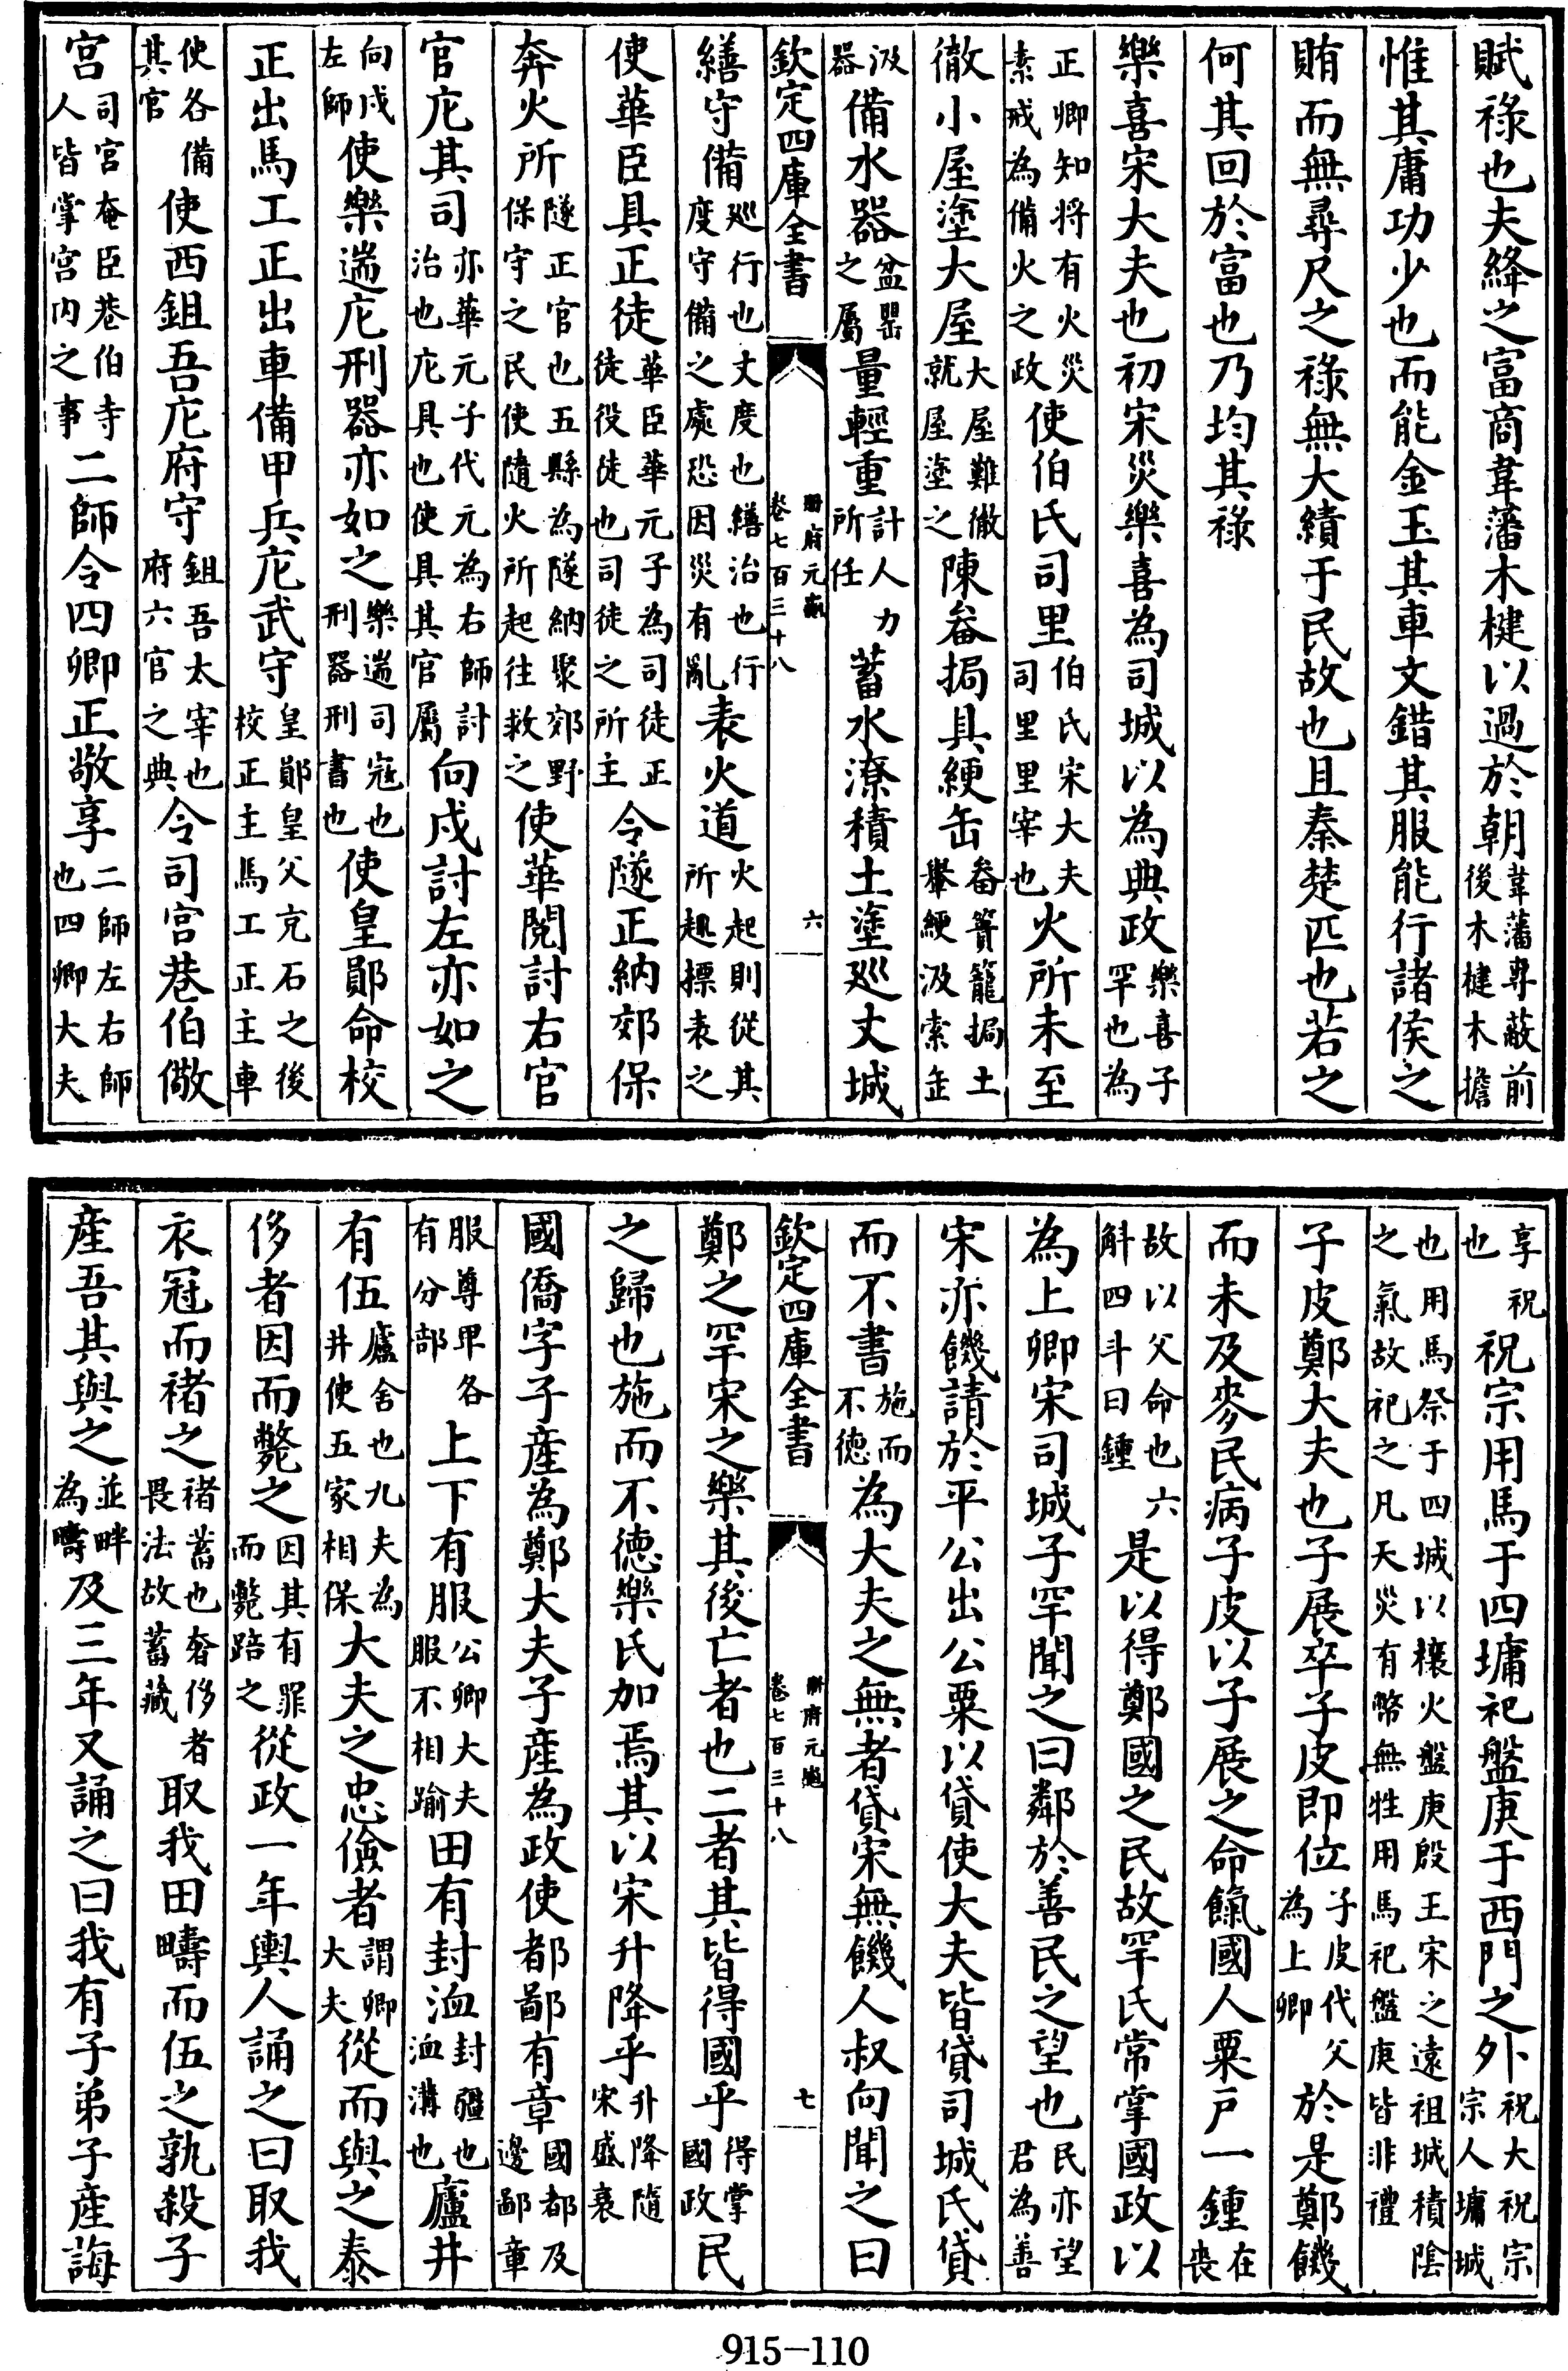 賦祿也夫絳之富商韋藩木楗以過於朝韋藩專蔽前後木楗木擔
惟其庸功少也而能金玉其車文錯其服能行諸侯之
賄而無尋尺之祿無大績于民故也且秦楚匹也若之
何其回於富也乃均其祿
樂喜宋大夫也初宋災樂喜為司城以為典政樂喜子罕也為
正卿知將有火災素戒為備火之政使伯氏司里伯氏宋大夫司里里宰也火所未至
徹小屋塗大屋大屋難徹就屋塗之陳畚挶具綆缶畚簣籠挶土轝綆汲索缶
汲器備水器盆罌之屬量輕重計人力所任蓄水潦積土塗巡丈城
欽定四庫全書 冊府元龜 卷七百三十八 六
繕守備巡行也丈度也繕治也行度守備之處恐因災有亂表火道火起則從其所趣摽表之
使華臣具正徒華臣華元子為司徒正徒役徒也司徒之所主令隧正納郊保
奔火所隧正官也五縣為隧納聚郊野保守之民使隨火所起往救之使華閱討右官
官庀其司亦華元子代元為右師討治也庀具也使具其官屬向戍討左亦如之
向戍左師使樂遄庀刑器亦如之樂遄司寇也刑器刑書也使皇鄖命校
正出馬工正出車備甲兵庀武守皇鄖皇父充石之後校正主馬工正主車
使各備其官使西鉏吾庀府守鉏吾太宰也府六官之典令司宮巷伯儆
宮司宮奄臣巷伯寺人皆掌宮內之事二師令四卿正敬享二師左右師也四卿大夫
享祝也祝宗用馬于四墉祀盤庚于西門之外祝大祝宗宗人墉城
也用馬祭于四城以禳火盤庚殷王宋之遠祖城積陰之氣故祀之凡天災有幣無牲用馬祀盤庚皆非禮
子皮鄭大夫也子展卒子皮即位子皮代父為上卿於是鄭饑
而未及麥民病子皮以子展之命餼國人粟户一鍾在喪
故以父命也六斛四斗曰鍾是以得鄭國之民故罕氏常掌國政以
為上卿宋司城子罕聞之曰鄰於善民之望也民亦望君為善
宋亦饑請於平公出公粟以貸使大夫皆貸司城氏貸
而不書施而不德為大夫之無者貸宋無饑人叔向聞之曰
欽定四庫全書 冊府元龜 卷七百三十八 七
鄭之罕宋之樂其後亡者也二者其皆得國乎得掌國政民
之歸也施而不德樂氏加焉其以宋升降乎升降隨宋盛衰
國僑字子產為鄭大夫子產為政使都鄙有章國都及邊鄙章
服尊卑各有分部上下有服公卿大夫服不相踰田有封洫封疆也洫溝也廬井
有伍廬舍也九夫為井使五家相保大夫之忠儉者謂卿大夫從而與之泰
侈者因而斃之因其有罪而斃踣之從政一年輿人誦之曰取我
衣冠而褚之褚蓄也奢侈者畏法故蓄藏取我田疇而伍之孰殺子
產吾其與之並畔為疇及三年又誦之曰我有子弟子產誨
915-110